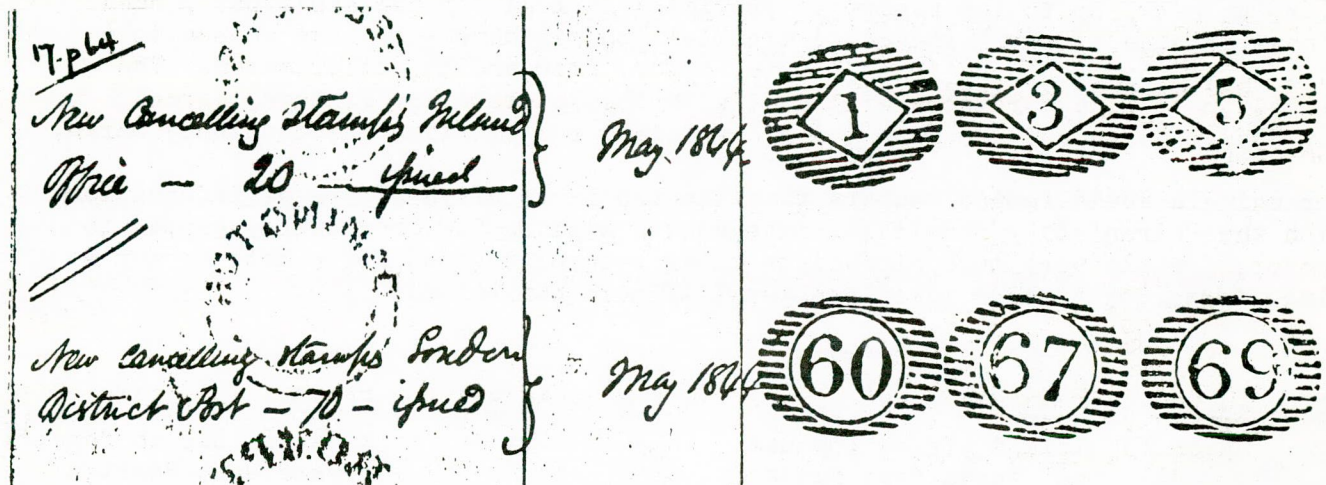 17-p64
New Cancelling Stamps Inland
Office — 20 — issued
May 1844
1 3 5
New cancelling stamps London
District Post – 70 – issued
May 1844
60 67 69